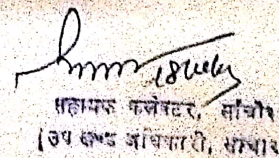 सहायक कलेक्टर, सांचोर
(उप खण्ड अधिकारी, सांचोर